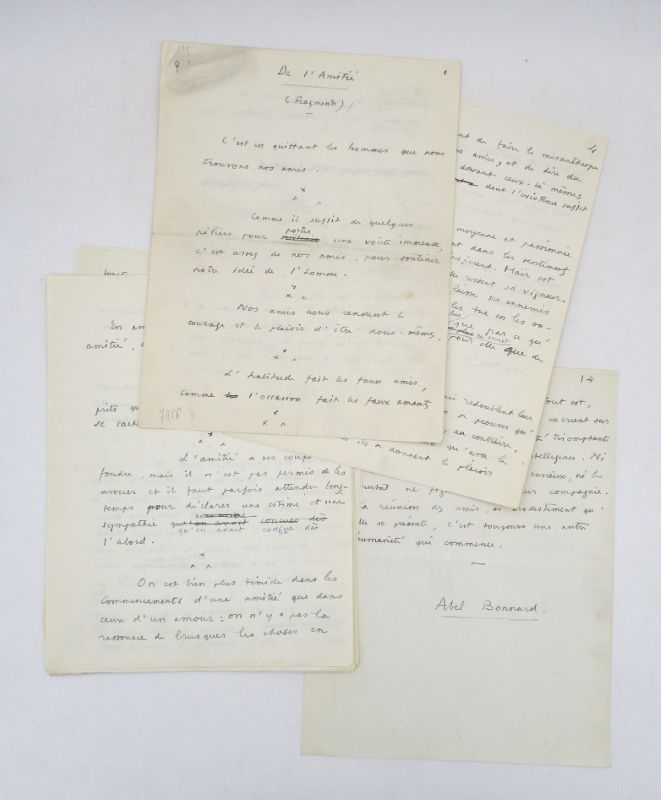 1
De l'Amitié
(Fragments)
C'est en quittant les hommes que nous
trouvons nos amis.
Comme il suffit de quelques
piliers pour porter une voûte immense,
c'est assez de nos amis, pour soutenir
notre idée de l'homme.
Nos amis nous rendent le
courage et le plaisir d'être nous-mêmes.
L'habitude fait les faux amis,
comme l'occasion fait les faux amants
7456
4
de faire le misanthrope
amis, et de dire du
devant ceux-là mêmes
dont l'existence suffit
moyenne et passionnée
dans les sentiments
Haïr est
sa vigueur.
ses ennemis
les tue en les ou-
par ce qu'
pour elle que de
redoublent leur
au contraire,
qu'aura le
se donnent le plaisir
En am
amitié,
prits qu
se cache
L'amitié a ses coups
foudre, mais il n'est pas permis de les
avouer et il faut parfois attendre long-
temps pour déclarer une estime et une
sympathie qu'on avait conçues dès
qu'on avait conçue dès
l'abord.
On est bien plus timide dans les
commencements d'une amitié que dans
ceux d'un amour: on n'y a pas la
ressource de brusquer les choses en
14
tout est,
excrent sur
triomphante
telligence. Ni
envieux, ni le
compagnie.
la réunion des amis,
se presente, c'est toujours une autre
humanité qui commence.
Abel Bonnard.